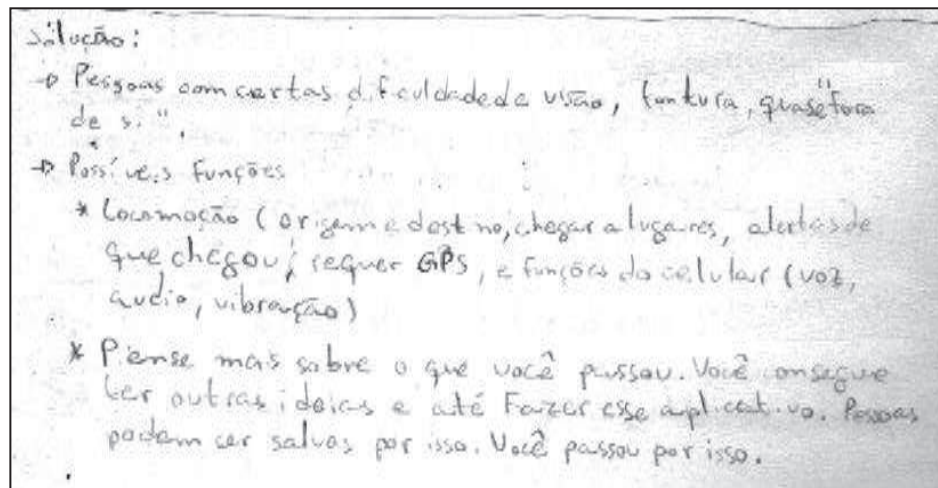 Solução:
→ Pessoas com certas dificuldade de visão, tontura, quase "fora
de si".
→ Possíveis funções
* Locomoção (origem e destino, chegar a lugares, alertas de
que chegou; requer GPS, e funções do celular (voz,
audio, vibração)
* Piense mais sobre o que você passou. Você consegue
ter outras ideias e até Fazer esse aplicativo. Pessoas
podem ser salvas por isso. Você passou por isso.